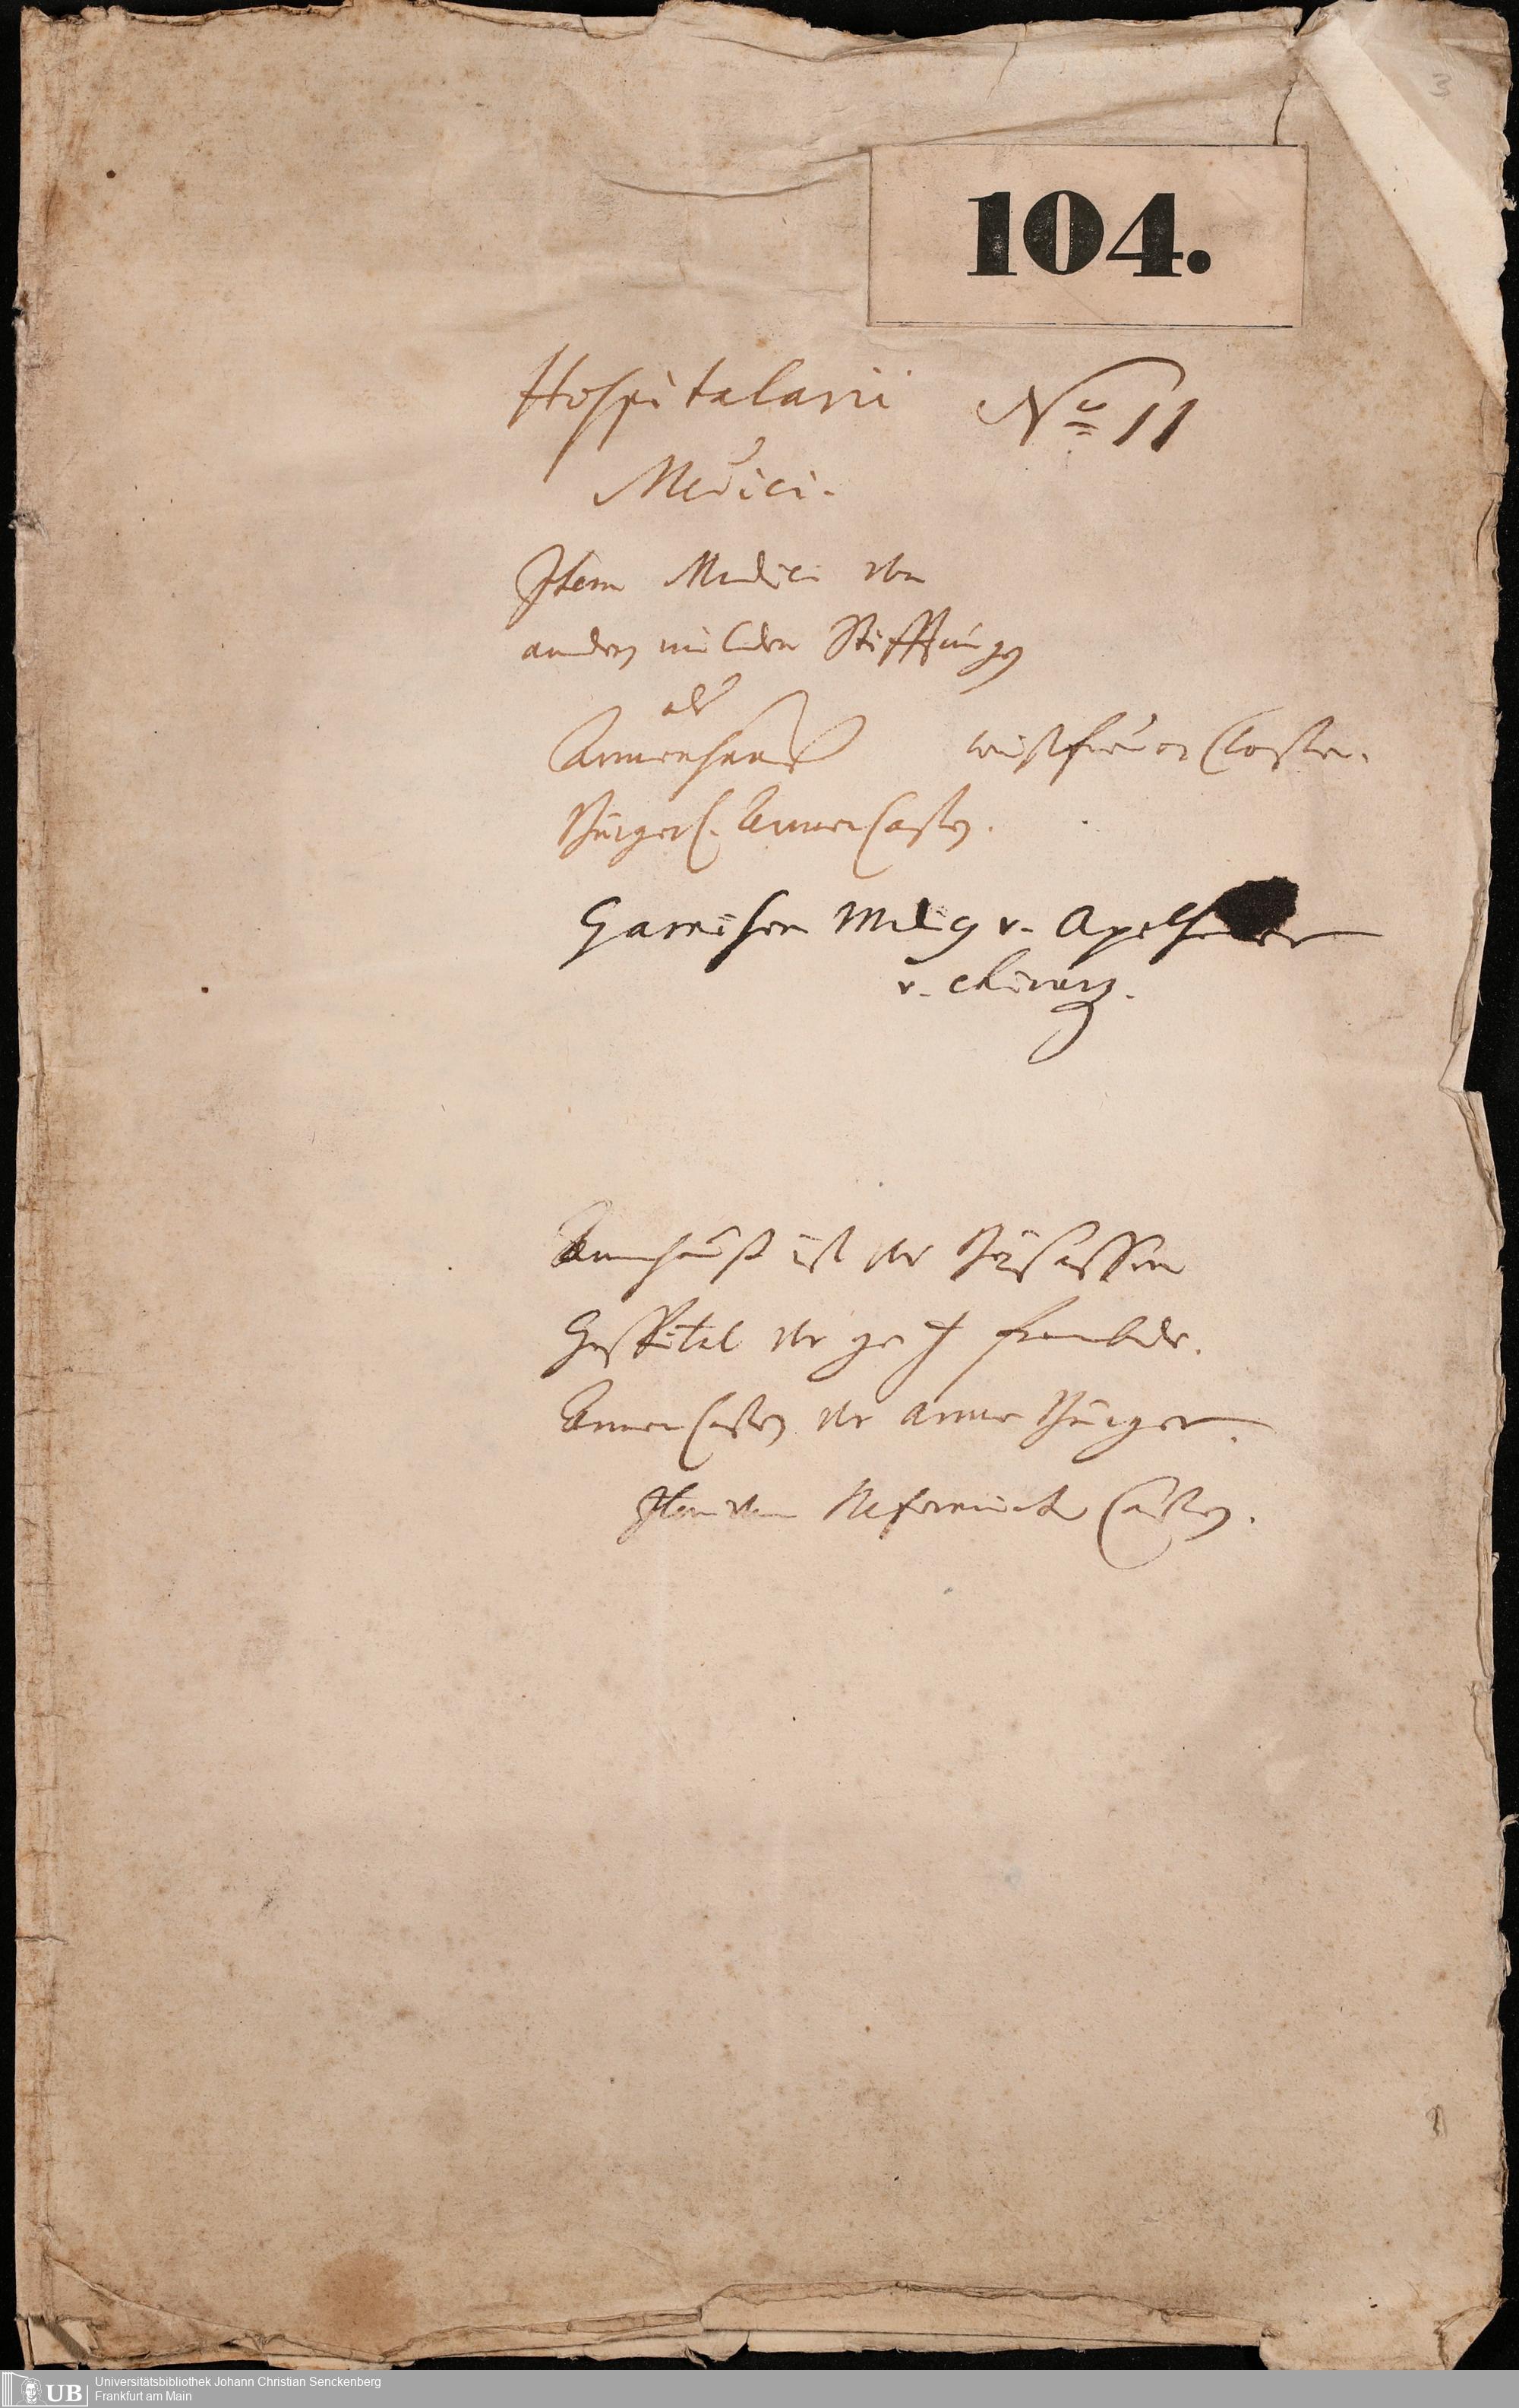 3
104.
Hospitalarii No 11
Medici.
Item Medici von
andern milden Stifftungen
als
Armenhauß weißfrauen Closter.
Bürgerl. Armen Casten.
Garnison Medicus v. Apotheker
v. Chirurg.
Armenhauß ist vor Beysassen
Hospital vor fremde.
Armen Casten vor arme Bürger.
Item Casten.
UB
Universitätsbibliothek Johann Christian Senckenberg
Frankfurt am Main